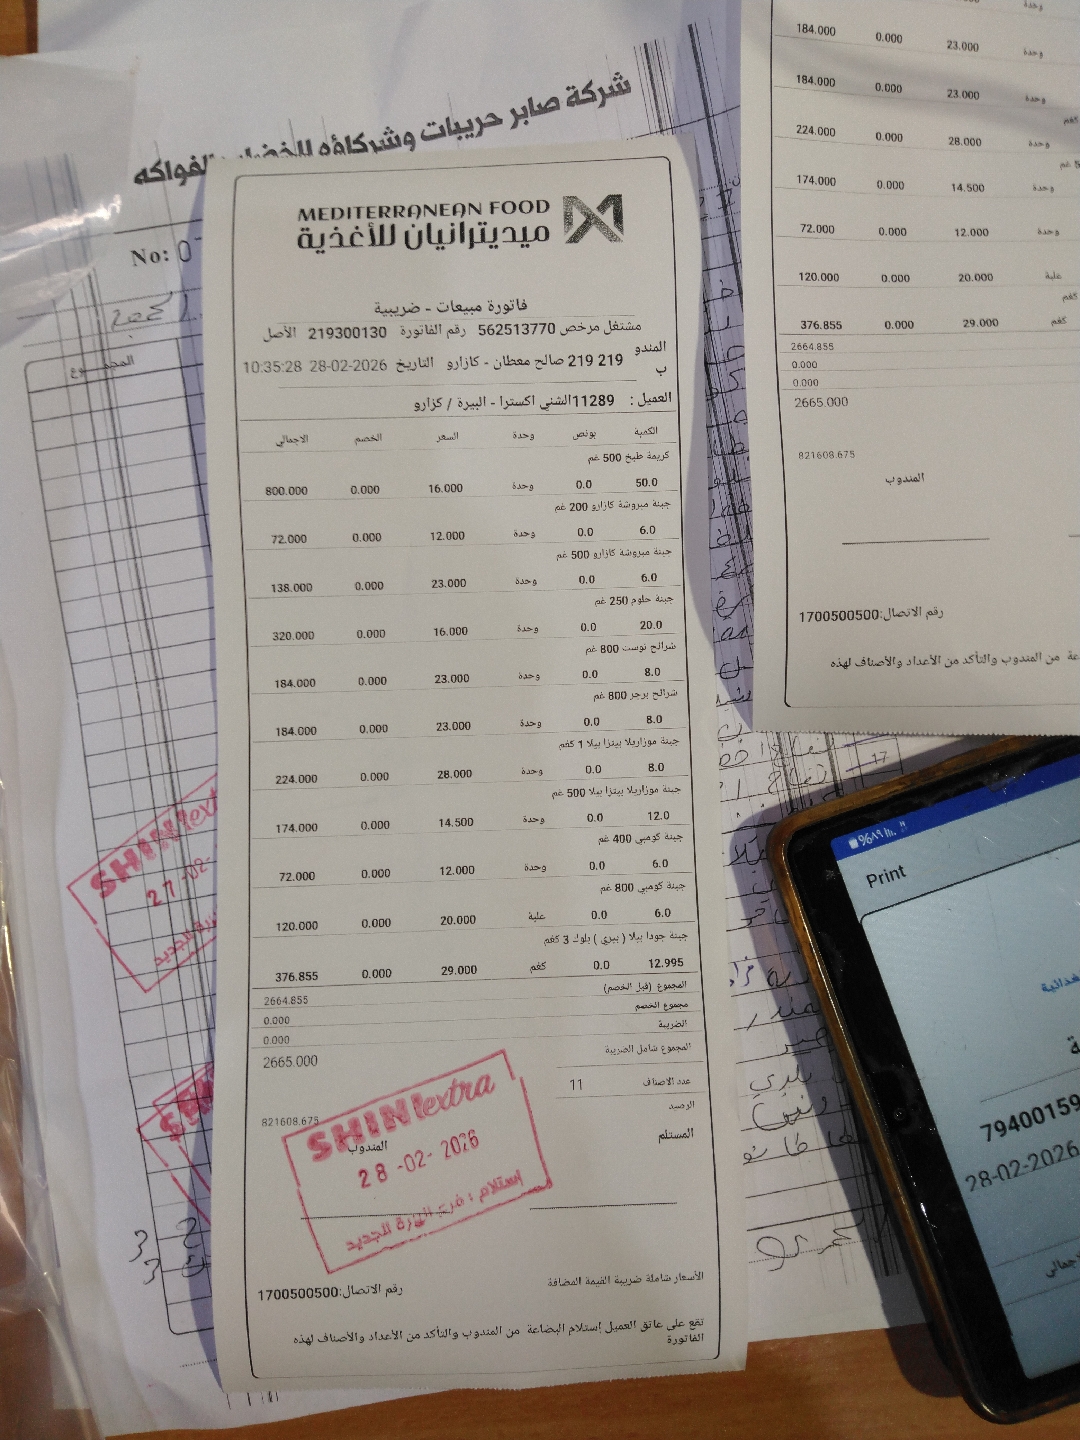 شركة صابر حريبات وشركاؤه للخضار والفواكه
No: 0
المجموع
MEDITERRANEAN FOOD
ميديترانيان للأغذية
فاتورة مبيعات - ضريبية
مشتغل مرخص 562513770 رقم الفاتورة 219300130 الأصل
المندوب 219 219 صالح معطان - كازارو التاريخ 28-02-2026 10:35:28
العميل : 11289الشني اكسترا - البيرة / كزارو
الكمية بونص وحدة السعر الخصم الاجمالي
كريمة طبخ 500 غم
50.0 0.0 وحدة 16.000 0.000 800.000
جبنة مبروشة كازارو 200 غم
6.0 0.0 وحدة 12.000 0.000 72.000
جبنة مبروشة كازارو 500 غم
6.0 0.0 وحدة 23.000 0.000 138.000
جبنة حلوم 250 غم
20.0 0.0 وحدة 16.000 0.000 320.000
شرائح توست 800 غم
8.0 0.0 وحدة 23.000 0.000 184.000
شرائح برجر 800 غم
8.0 0.0 وحدة 23.000 0.000 184.000
جبنة موزاريلا بيتزا بيلا 1 كغم
8.0 0.0 وحدة 28.000 0.000 224.000
جبنة موزاريلا بيتزا بيلا 500 غم
12.0 0.0 وحدة 14.500 0.000 174.000
جبنة كومبي 400 غم
6.0 0.0 وحدة 12.000 0.000 72.000
جبنة كومبي 800 غم
6.0 0.0 علبة 20.000 0.000 120.000
جبنة جودا بيلا ( بيري ) بلوك 3 كغم
12.995 0.0 كغم 29.000 0.000 376.855
المجموع (قبل الخصم) 2664.855
مجموع الخصم 0.000
الضريبة 0.000
المجموع شامل الضريبة 2665.000
عدد الاصناف 11
الرصيد 821608.675
المستلم المندوب
SHINI extra
28 -02- 2026
إستلام : فرع البيرة الجديد
الأسعار شاملة ضريبة القيمة المضافة
رقم الاتصال:1700500500
تقع على عاتق العميل إستلام البضاعة من المندوب والتأكد من الأعداد والأصناف لهذه
الفاتورة
SHINI extra
27 -02-
الجديد
وحدة
وحدة 23.000 0.000 184.000
وحدة 23.000 0.000 184.000
كغم
وحدة 28.000 0.000 224.000
غم
وحدة 14.500 0.000 174.000
وحدة 12.000 0.000 72.000
علبة 20.000 0.000 120.000
كغم
كغم 29.000 0.000 376.855
2664.855
0.000
0.000
2665.000
821608.675
المندوب
رقم الاتصال:1700500500
من المندوب والتأكد من الأعداد والأصناف لهذه
%٨٩
Print
79400159
28-02-2026